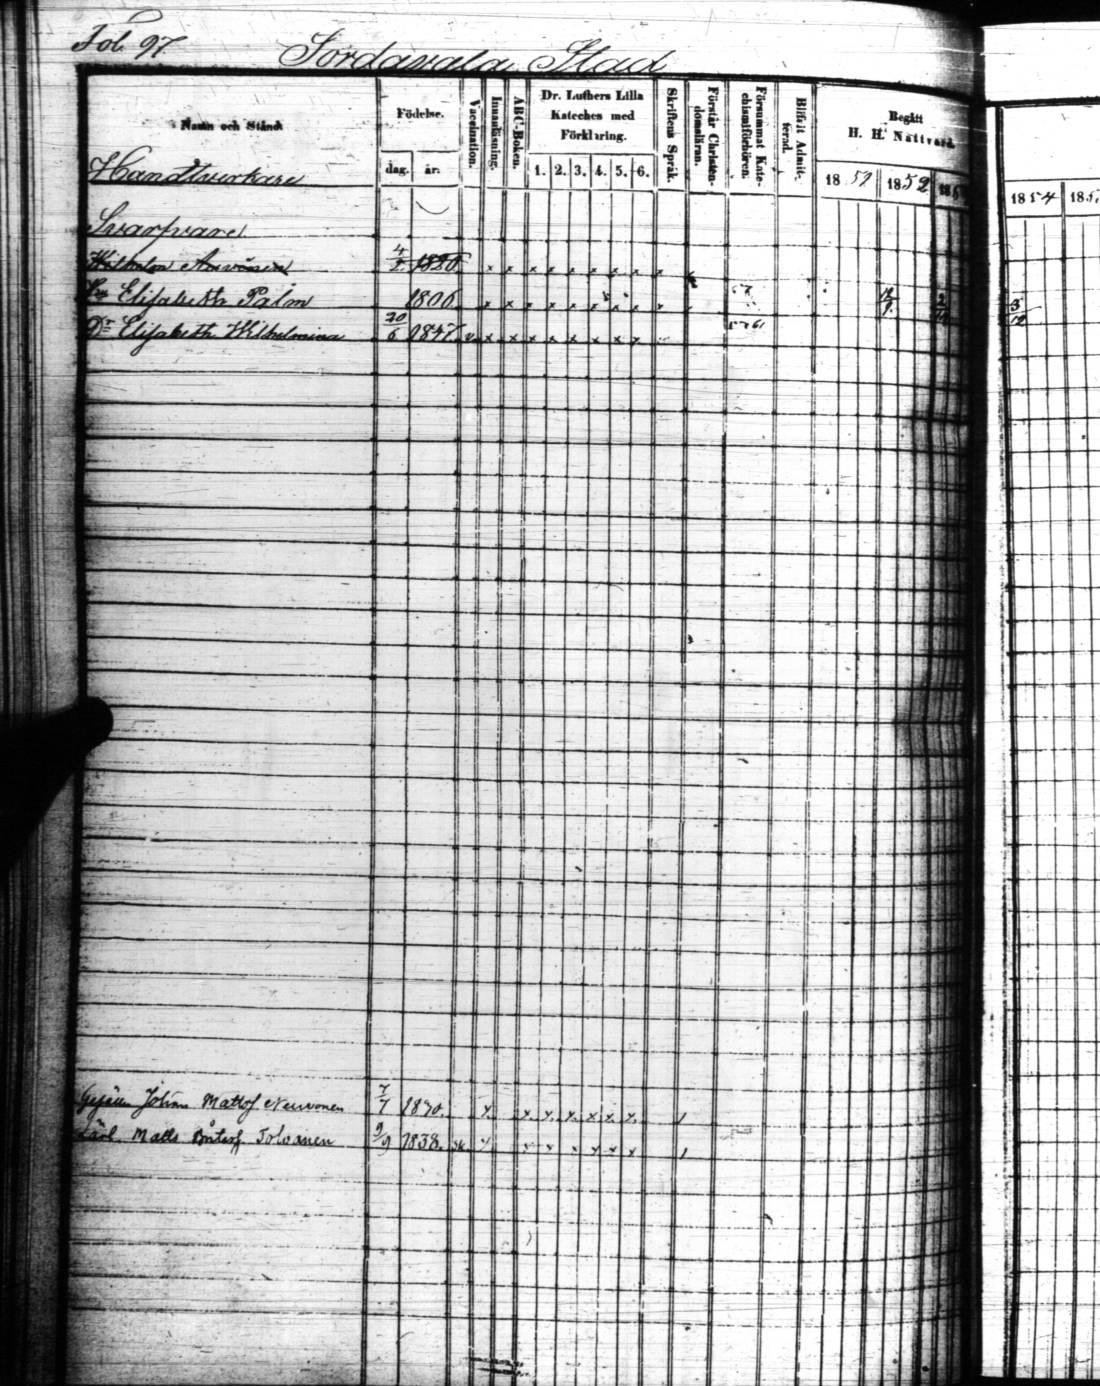 Fol. 97 Sordavala Stad
Namn och Stånd.
Födelse.
dag. år.
Vaccination.
Innanläsning.
ABC-Boken.
Dr. Luthers Lilla
Kateches med
Förklaring.
1. 2. 3. 4. 5. 6.
Skriftens Språk.
Förstår Christen-
domsläran.
Försummat Kate-
chismiförhören.
Blifvit Admit-
terad.
Begått
H. H. Nattvard.
18 51 1852
1854 185
Handtverkare
Svarfvare
Wilhelm 4/2 1820 x x x x x x x x x
Elisabeth Palm 1806 x x x x x x x x x
Dr Elisabeth Wilhelmina 30/6 1847. v. x x x x x x x x
Johan Mattsf Neuvonen 7/7 1830. x x x x x x x
Lärl. Matts Tolvanen 9/9 1838. x x x x x x x